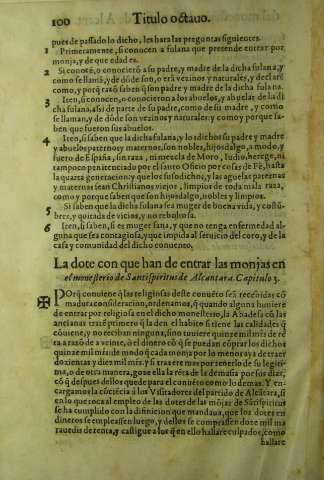 100 Titulo octauo.
pues de passado lo dicho, les hara las preguntas siguientes.
1 Primeramente, si conocen a fulana que pretende entrar por
monja, y de que edad es.
2 Si conocē, o conocierō a su padre, y madre de la dicha fulana, y
como se llamā, y de dōde son, o erā vezinos y naturales, y declarē
como, y porq̄ razō sabē q̄ son padre y madre de la dicha fulana.
3 Iten, si conocen, o conocieron a los abuelos, y abuelas de la di
cha fulana, assi de parte de su padre, como de su madre, y como
se llaman, y de dōde son vezinos y naturales: y como y porque sa-
ben que fueron sus abuelos.
4 Iten, si saben que la dicha fulana, y los dichos su padre y madre
y abuelos paternos y maternos, son nobles, hijosdalgo, a modo, y
fuero de España, sin raza, ni mezcla de Moro, Iudio, herege, ni
tampoco penitenciado por el santo Oficio por cosas de Fè, hasta
la quarta generacion: y que los susodichos, y las aguelas paternas
y maternas sean Christianos viejos, limpios de toda mala raza,
como, y porque saben que son hijosdalgo, nobles y limpios.
5 Si saben que la dicha fulana sea muger de buena vida, y costū-
bres, y quitada de vicios, y no reboltosa.
6 Iten, si saben, si es muger sana, y que no tenga enfermedad al
guna que sea contagiosa, y que impida al seruicio del coro, y de la
casa y comunidad del dicho conuento.
La dote con que han de entrar las monjas en
el monesterio de Santispiritus de Alcantara. Capitulo 3.
POrq̄ conuiene q̄ las religiosas deste conuēto seā recenidas cō
madura consideracion, ordenamos, q̄ quando alguna huuiere
de entrar por religiosa en el dicho monesterio, la Abadesa cō las
ancianas traxe primero q̄ la den el habito si tiene las calidades q̄
cōuiene, y no reciban ninguna, sino tuuiere quinze mil mrs de rē
ta a razō de a veinte, o el dinero cō q̄ se puedan cōprar los dichos
quinze mil mrs de modo q̄ cada monja por lo menos aya de traer
dozientas y diez mil mrs. y si traxere mas por señerlo de su legiti-
ma, o de otra manera, goze ella la rēta de la demasia por sus dias,
cō q̄ despues dellos quede para el conuēto como lo demas. Y en-
cargamos la cōciēcia a los Visitadores del partido de Alcātara, si
en lo que toca al empleo de las dotes de las mōjas de Sātispiritus
se ha cumplido con la difinicion que mandaua, que los dotes en
dineros se empleassen luego, y dellos se comprassen doze mil ma
rauedis de renta, y castigue a los q̄ en ello hallare culpados, como
hallare